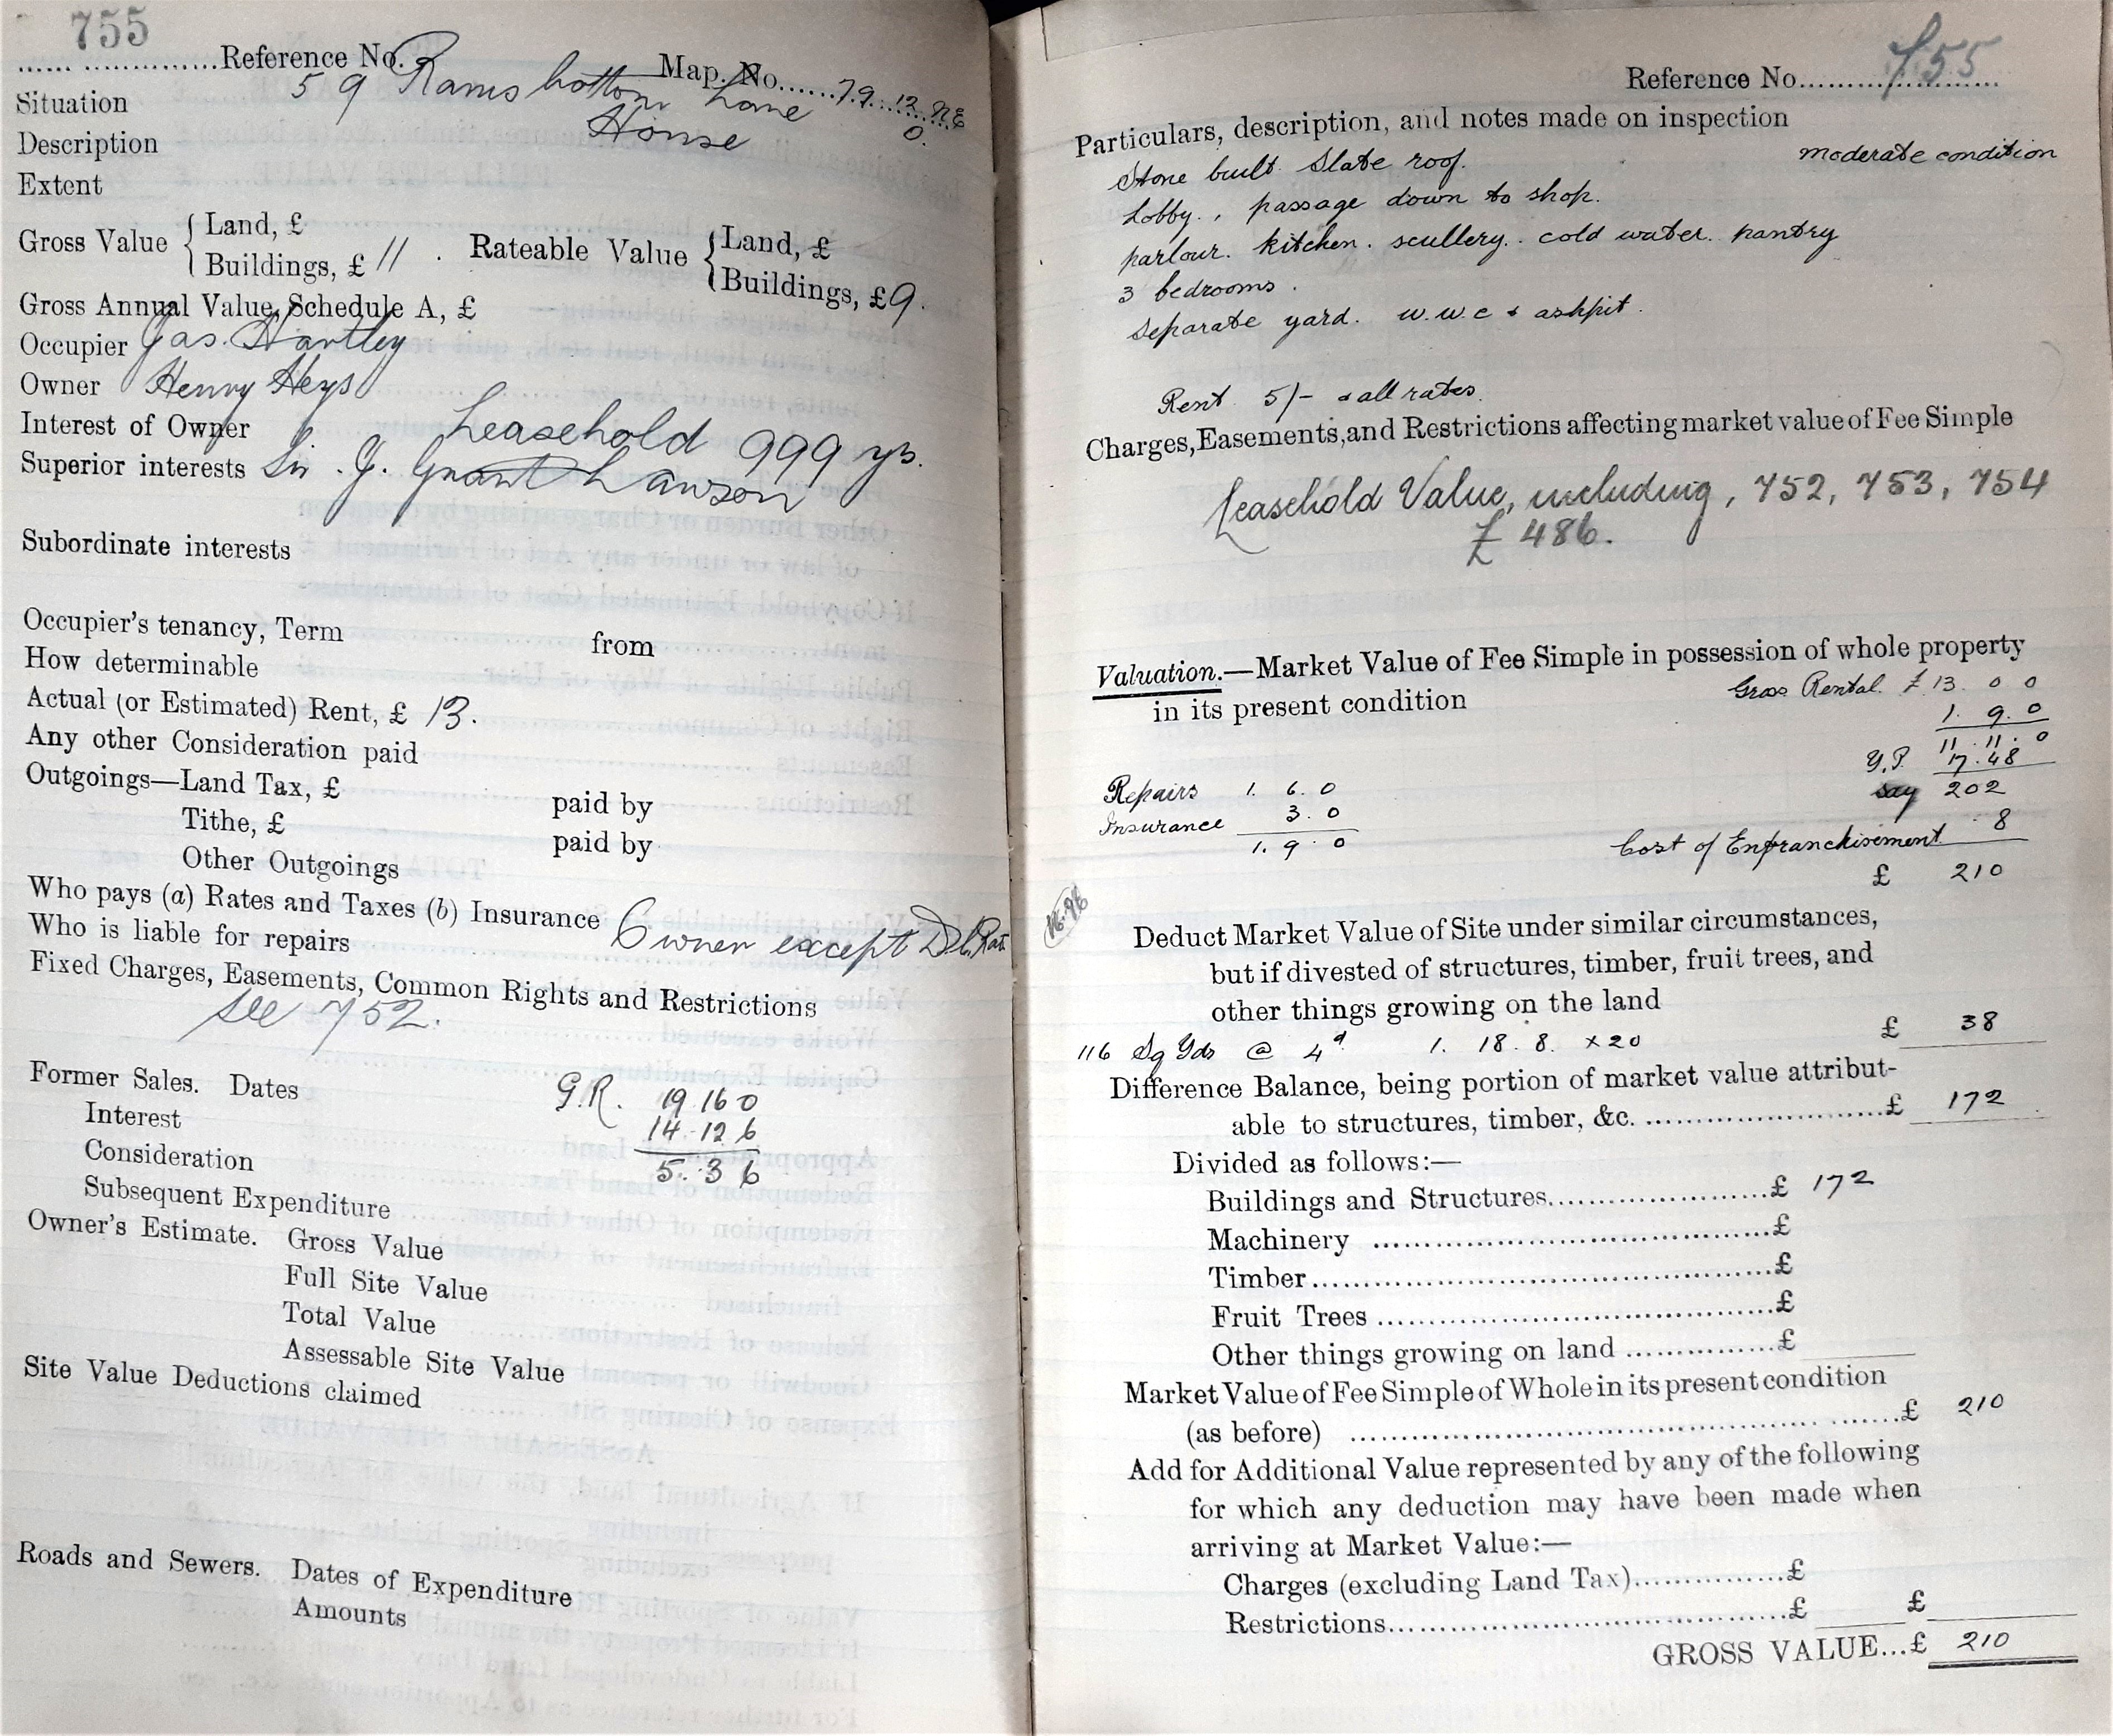 755
Reference No. Map. No. 79.12.NE
Situation 59 Ramsbottom Lane 0.
Description House
Extent
Gross Value { Land, £ Rateable Value { Land, £
Buildings, £ 11 . Buildings, £9.
Gross Annual Value, Schedule A, £
Occupier Jas. Hartley
Owner Henry Heys
Interest of Owner Leasehold 999 yrs.
Superior interests Sir . J. Grant Lawson
Subordinate interests
Occupier's tenancy, Term from
How determinable
Actual (or Estimated) Rent, £ 13.
Any other Consideration paid
Outgoings—Land Tax, £ paid by
Tithe, £ paid by
Other Outgoings
Who pays (a) Rates and Taxes (b) Insurance
Who is liable for repairs Owner except
Fixed Charges, Easements, Common Rights and Restrictions
see 752.
Former Sales. Dates G.R. 19 16 0
Interest 14 12 6
Consideration 5. 3 6
Subsequent Expenditure
Owner's Estimate. Gross Value
Full Site Value
Total Value
Assessable Site Value
Site Value Deductions claimed
Roads and Sewers. Dates of Expenditure
Amounts
Reference No. 755
Particulars, description, and notes made on inspection
Stone built. Slate roof. moderate condition
Lobby. , passage down to shop.
parlour. kitchen. scullery. cold water. pantry
3 bedrooms .
separate yard. w.w.c & ashpit.
Rent 5/- & all rates.
Charges, Easements, and Restrictions affecting market value of Fee Simple
Leasehold Value, including, 752, 753, 754
£ 486.
Valuation.—Market Value of Fee Simple in possession of whole property
in its present condition Gross Rental. £ 13. 0 0
1. 9. 0
11. 11. 0
Y.P. 17.48
Repairs 1. 6. 0 say 202
Insurance 3. 0
1. 9. 0 Cost of Enfranchisement 8
£ 210
Deduct Market Value of Site under similar circumstances,
but if divested of structures, timber, fruit trees, and
other things growing on the land
116 Sq Yds @ 4d 1. 18. 8. x20 £ 38
Difference Balance, being portion of market value attribut-
able to structures, timber, &c. £ 172
Divided as follows:—
Buildings and Structures £ 172
Machinery £
Timber £
Fruit Trees £
Other things growing on land £
Market Value of Fee Simple of Whole in its present condition
(as before) £ 210
Add for Additional Value represented by any of the following
for which any deduction may have been made when
arriving at Market Value:—
Charges (excluding Land Tax) £
Restrictions £ £
GROSS VALUE...£ 210